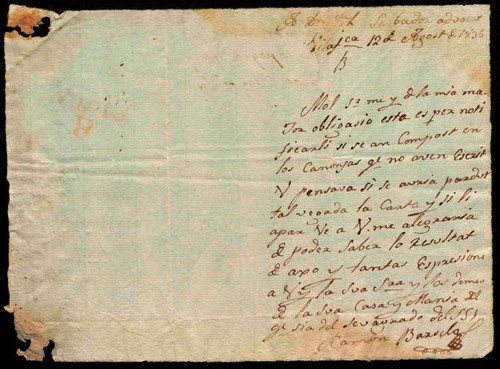 A Dn Sabada advocat
Majca 12 de Agost de 1836
Mol Sr me y de la mia ma
jor obligasio esta es per noti
ficarli si se an Compost en
los Canonjas qe no aven Escrit
V pensava si se auria pardut
tal vegada la Carta y si li
apar Ve a V. me alegraria
de poder Saber lo Resultat
de axo y tantas Espresions
a V y la Sua Sra y los demes
de la Sua Casa y Mansa del
qe sia del Seu agrado del SSS
Ramon Barselo